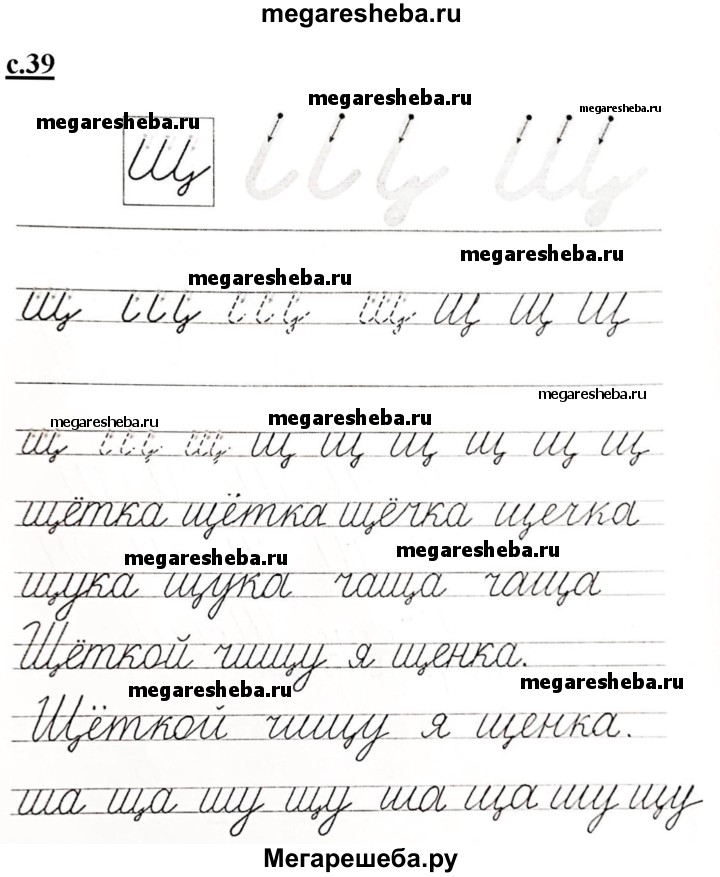 megaresheba.ru
с.39
megaresheba.ru megaresheba.ru megaresheba.ru
Щ Щ
megaresheba.ru megaresheba.ru
Щ Щ Щ Щ Щ
megaresheba.ru megaresheba.ru megaresheba.ru
щ щ щ щ щ щ щ щ
щётка щётка щёчка щечка
megaresheba.ru megaresheba.ru
щука щука чаща чаща
Щёткой чищу я щенка.
megaresheba.ru megaresheba.ru
Щёткой чищу я щенка.
ша ща шу щу ша ща шу щу
Мегарешеба.ру